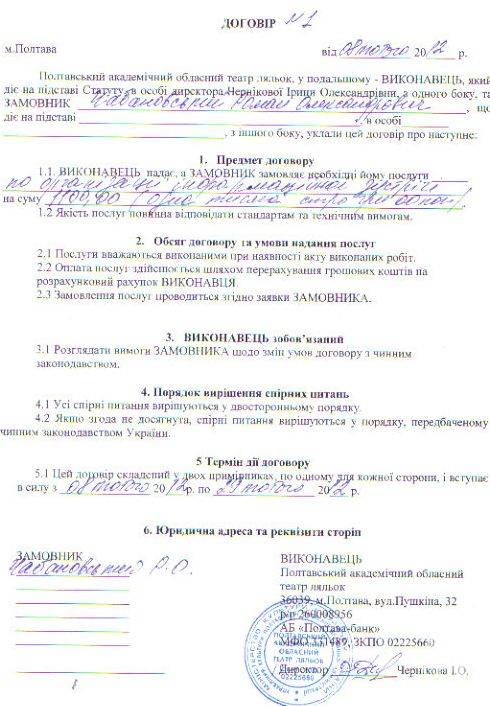 ДОГОВІР №1
м.Полтава від 08 лютого 2012 р.
Полтавський академічний обласний театр ляльок, у подальшому - ВИКОНАВЕЦЬ, який
діє на підставі Статуту, в особі директора Чернікової Ірини Олександрівни, з одного боку, та
ЗАМОВНИК Кабановський Роман Олександрович, що
діє на підставі , в особі
, з іншого боку, уклали цей договір про наступне:
1. Предмет договору
1.1. ВИКОНАВЕЦЬ надає, а ЗАМОВНИК замовляє необхідні йому послуги
по організації інформаційної
на суму 1100,00 (одна тисяча сто гривень)
1.2 Якість послуг повинна відповідати стандартам та технічним вимогам.
2. Обсяг договору та умови надання послуг
2.1 Послуги вважаються виконаними при наявності акту виконаних робіт.
2.2 Оплата послуг здійснюється шляхом перерахування грошових коштів на
розрахунковий рахунок ВИКОНАВЦЯ.
2.3 Замовлення послуг проводиться згідно заявки ЗАМОВНИКА.
3. ВИКОНАВЕЦЬ зобов'язаний
3.1 Розглядати вимоги ЗАМОВНИКА щодо змін умов договору з чинним
законодавством.
4. Порядок вирішення спірних питань
4.1 Усі спірні питання вирішуються у двосторонньому порядку.
4.2 Якщо згода не досягнута, спірні питання вирішуються у порядку, передбаченому
чинним законодавством України.
5 Термін дії договору
5.1 Цей договір складений у двох примірниках, по одному для кожної сторони, і вступає
в силу з 08 лютого 2012 р. по 29 лютого 2012 р.
6. Юридична адреса та реквізити сторін
ЗАМОВНИК
Кабановський Р.О.
ВИКОНАВЕЦЬ
Полтавський академічний обласний
театр ляльок
36039, м.Полтава, вул.Пушкіна, 32
р/р 260008956
АБ «Полтава-банк»
МФО 331489, ЗКПО 02225660
Директор Чернікова І.О.
ПОЛТАВСЬКИЙ
АКАДЕМІЧНИЙ
ОБЛАСНИЙ
ТЕАТР ЛЯЛЬОК
02225660